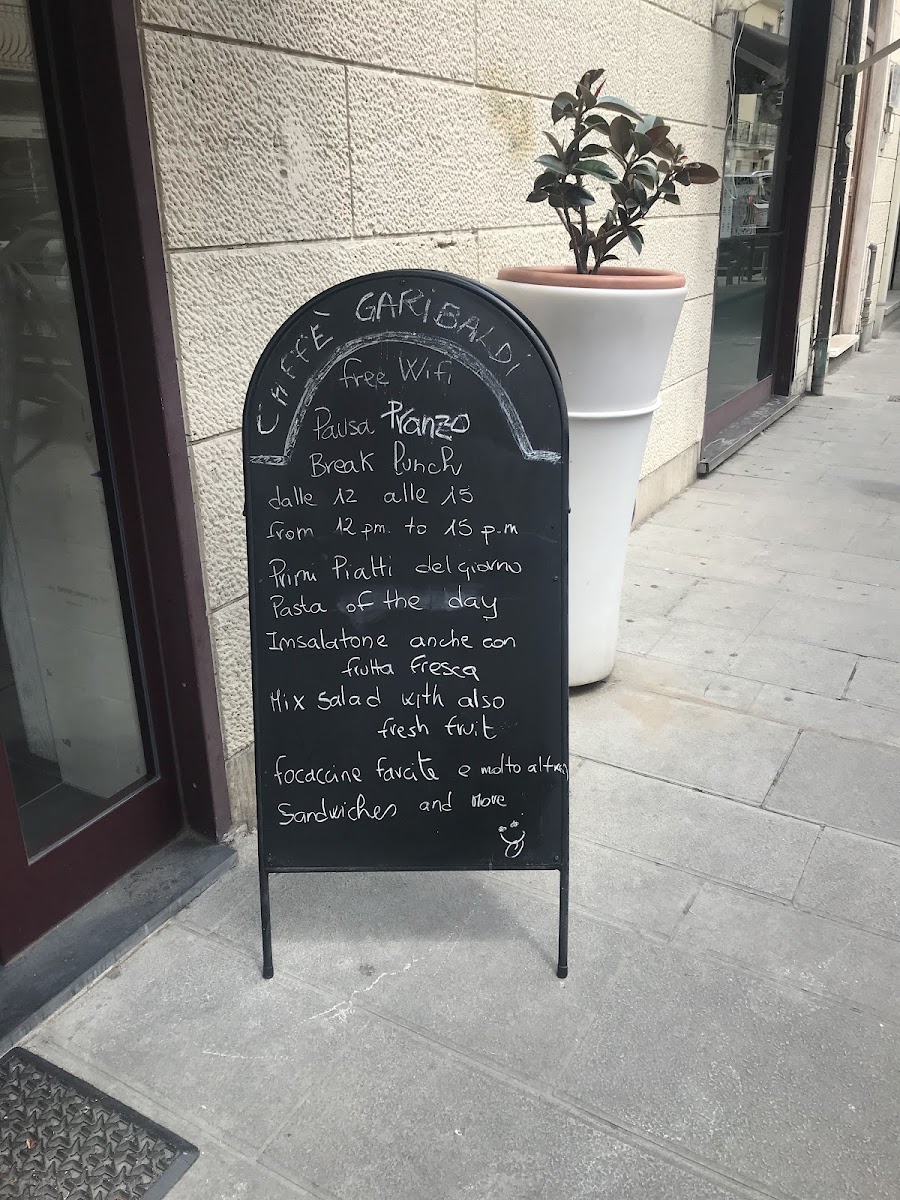 CAFFÈ GARIBALDI
free Wifi
Pausa Pranzo
Break lunch
dalle 12 alle 15
from 12 pm. to 15 p.m
Primi Piatti del giorno
Pasta of the day
Imsalatone anche con
frutta fresca
Mix Salad with also
fresh fruit
focaccine farcite e molto altro
Sandwiches and More